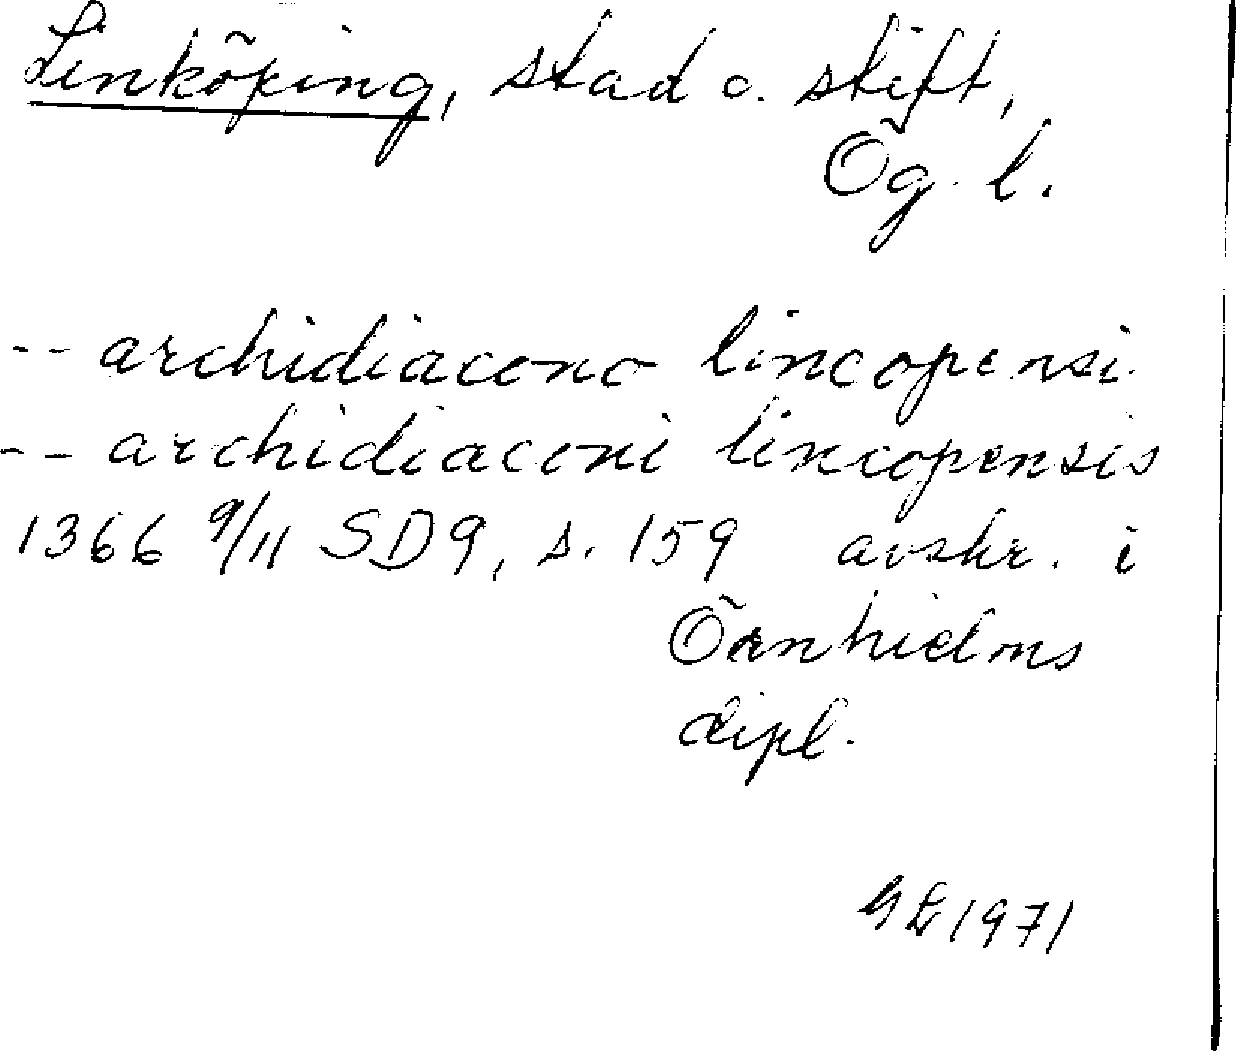 Linköping, stad o. stift,
Ög. l.
-- archidiacono lincopensi
-- archidiaconi lincopensis
1366 9/11 SD9, s. 159 avskr. i
Örnhielms
dipl.
1971